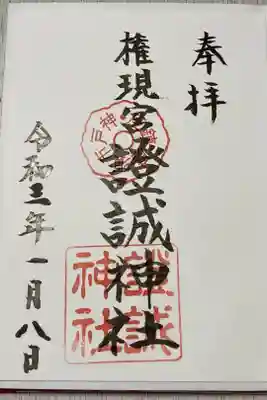 奉拝
権現宮證誠神社
令和三年一月八日
證誠神社